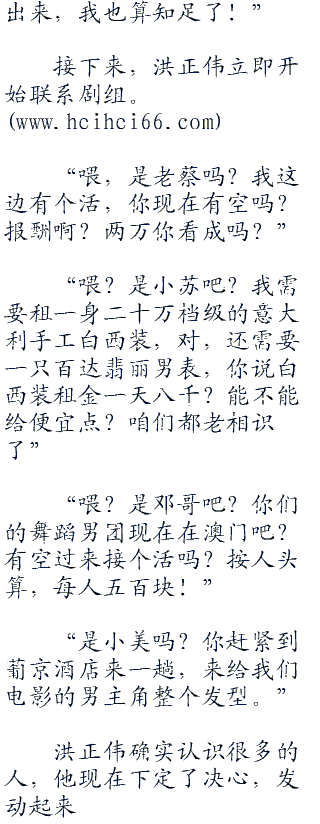 出来，我也算知足了！”
接下来，洪正伟立即开
始联系剧组。
(www.hcihci66.com)
“喂，是老蔡吗？我这
边有个活，你现在有空吗？
报酬啊？两万你看成吗？”
“喂？是小苏吧？我需
要租一身二十万档级的意大
利手工白西装，对，还需要
一只百达翡丽男表，你说白
西装租金一天八千？能不能
给便宜点？咱们都老相识
了”
“喂？是邓哥吧？你们
的舞蹈男团现在在澳门吧？
有空过来接个活吗？按人头
算，每人五百块！”
“是小美吗？你赶紧到
葡京酒店来一趟，来给我们
电影的男主角整个发型。”
洪正伟确实认识很多的
人，他现在下定了决心，发
动起来